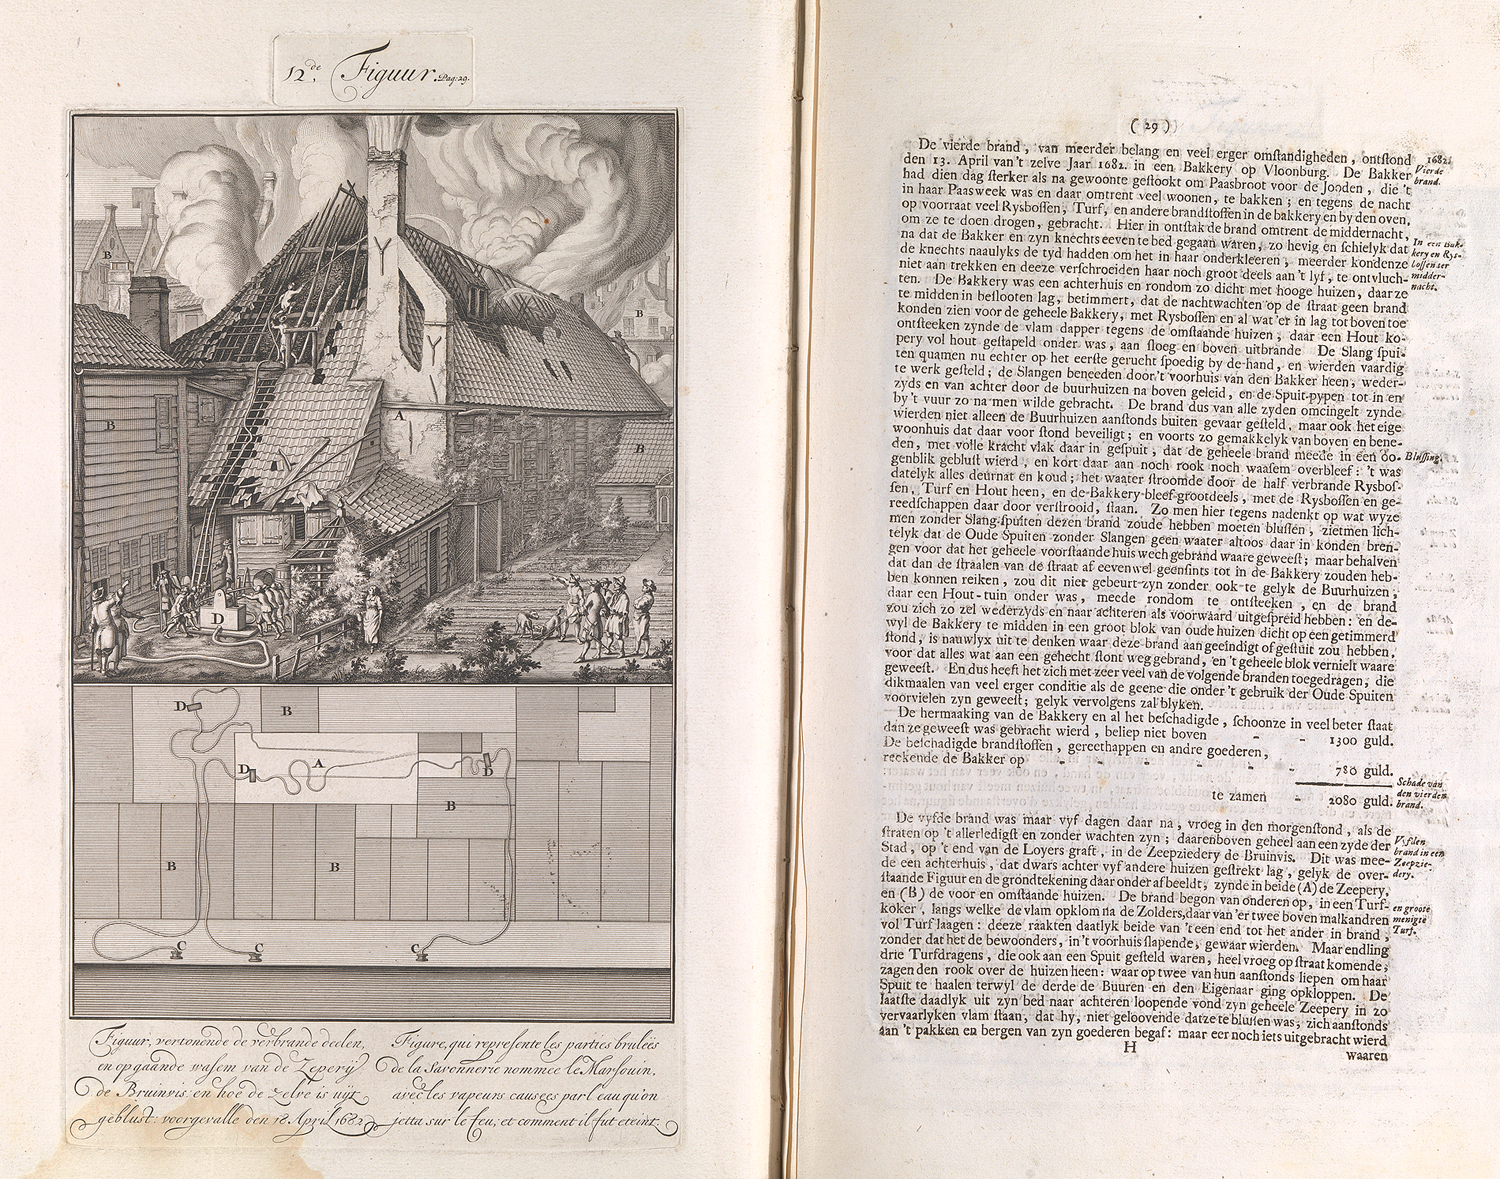 12de. Figuur. Pag: 29.
B
B
B
A
B
D
D
B
A
D
D
B
B
B
C
C
C
Figuur, vertonende de verbrande deelen,
en opgaande wasem van de Zeperij
de Bruinvis: en hoe de zelve is uijt
geblust: voorgevalle den 18 April 1682
Figure, qui represente les parties bruleës
de la Savonnerie nommee le Marsouin,
avec les vapeurs causees par l'eau qu'on
jetta sur le feu, et comment il fut eteint.
( 29 )
De vierde brand, van meerder belang en veel erger omſtandigheden, ontſtond
den 13. April van 't zelve Jaar 1682. in een Bakkery op Vloonburg. De Bakker
had dien dag ſterker als na gewoonte geſtookt om Paasbroot voor de Jooden, die 't
in haar Paasweek was en daar omtrent veel woonen, te bakken; en tegens de nacht
op voorraat veel Rysboſſen, Turf, en andere brandſtoffen in de bakkery en by den oven,
om ze te doen drogen, gebracht. Hier in ontſtak de brand omtrent de middernacht,
na dat de Bakker en zyn knechts eeven te bed gegaan waren, zo hevig en ſchielyk dat
de knechts naaulyks de tyd hadden om het in haar onderkleeren, meerder kondenze
niet aan trekken en deeze verſchroeiden haar noch groot deels aan 't lyf, te ontvluch-
ten. De Bakkery was een achterhuis en rondom zo dicht met hooge huizen, daar ze
te midden in beſlooten lag, betimmert, dat de nachtwachten op de ſtraat geen brand
konden zien voor de geheele Bakkery, met Rysboſſen en al wat 'er in lag tot boven toe
ontſteeken zynde de vlam dapper tegens de omſtaande huizen, daar een Hout ko-
pery vol hout geſtapeld onder was, aan ſloeg en boven uitbrande De Slang ſpui-
ten quamen nu echter op het eerſte gerucht ſpoedig by de hand, en wierden vaardig
te werk geſteld; de Slangen beneeden door 't voorhuis van den Bakker heen, weder-
zyds en van achter door de buurhuizen na boven geleid, en de Spuit-pypen tot in en
by 't vuur zo na men wilde gebracht. De brand dus van alle zyden omcingelt zynde
wierden niet alleen de Buurhuizen aanſtonds buiten gevaar geſteld, maar ook het eige
woonhuis dat daar voor ſtond beveiligt; en voorts zo gemakkelyk van boven en bene-
den, met volle kracht vlak daar in geſpuit, dat de geheele brand meede in een oo-
genblik gebluſt wierd, en kort daar aan noch rook noch waaſem overbleef: 't was
datelyk alles deurnat en koud; het waater ſtroomde door de half verbrande Rysboſ-
ſen, Turf en Hout heen, en de Bakkery bleef grootdeels, met de Rysboſſen en ge-
reedſchappen daar door verſtrooid, ſtaan. Zo men hier tegens nadenkt op wat wyze
men zonder Slang-ſpuiten dezen brand zoude hebben moeten bluſſen, ziet men lich-
telyk dat de Oude Spuiten zonder Slangen geen waater altoos daar in konden bren-
gen voor dat het geheele voorſtaande huis wech gebrand waare geweeſt; maar behalven
dat dan de ſtraalen van de ſtraat af eevenwel geenſints tot in de Bakkery zouden heb-
ben konnen reiken, zou dit niet gebeurt zyn zonder ook te gelyk de Buurhuizen,
daar een Hout-tuin onder was, meede rondom te ontſteeken, en de brand
zou zich zo zel wederzyds en naar achteren als voorwaard uitgeſpreid hebben: en de-
wyl de Bakkery te midden in een groot blok van oude huizen dicht op een getimmerd
ſtond, is nauwlyx uit te denken waar deze brand aan geeindigt of geſtuit zou hebben,
voor dat alles wat aan een gehecht ſtont weg gebrand, en 't geheele blok vernielt waare
geweeſt. En dus heeft het zich met zeer veel van de volgende branden toegedragen, die
dikmaalen van veel erger conditie als de geene die onder 't gebruik der Oude Spuiten
voorvielen zyn geweeſt; gelyk vervolgens zal blyken.
De hermaaking van de Bakkery en al het beſchadigde, ſchoonze in veel beter ſtaat
dan ze geweeſt was gebracht wierd, beliep niet boven - - 1300 guld.
De beſchadigde brandſtoffen, gereetſchappen en andre goederen,
reekende de Bakker op - - - - - 780 guld.
te zamen - 2080 guld.
De vyfde brand was maar vyf dagen daar na, vroeg in den morgenſtond, als de
ſtraten op 't allerledigſt en zonder wachten zyn; daarenboven geheel aan een zyde der
Stad, op 't end van de Loyers graft, in de Zeepziedery de Bruinvis. Dit was mee-
de een achterhuis, dat dwars achter vyf andere huizen geſtrekt lag, gelyk de over-
ſtaande Figuur en de grondtekening daar onder afbeeldt; zynde in beide (A) de Zeepery,
en (B) de voor en omſtaande huizen. De brand begon van onderen op, in een Turf-
koker, langs welke de vlam opklom na de Zolders, daar van 'er twee boven malkandren
vol Turf laagen: deeze raakten daatlyk beide van 't een end tot het ander in brand,
zonder dat het de bewoonders, in 't voorhuis ſlapende, gewaar wierden. Maar endling
drie Turfdragens, die ook aan een Spuit geſteld waren, heel vroeg op ſtraat komende,
zagen den rook over de huizen heen: waar op twee van hun aanſtonds liepen om haar
Spuit te haalen terwyl de derde de Buuren en den Eigenaar ging opkloppen. De
laatſte daadlyk uit zyn bed naar achteren loopende vond zyn geheele Zeepery in zo
vervaarlyken vlam ſtaan, dat hy, niet geloovende datze te bluſſen was, zich aanſtonds
aan 't pakken en bergen van zyn goederen begaf: maar eer noch iets uitgebracht wierd
H
waaren
1682.
Vierde
brand.
In een Bak-
kery en Rys-
boſſen ter
midder-
nacht.
Bluſſing.
Schade van
den vierden
brand.
Vyfden
brand in een
Zeepzie-
dery.
en groote
menigte
Turf.